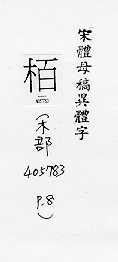 宋體母稿異體字
栢
405783
(禾部
405783
P.8)